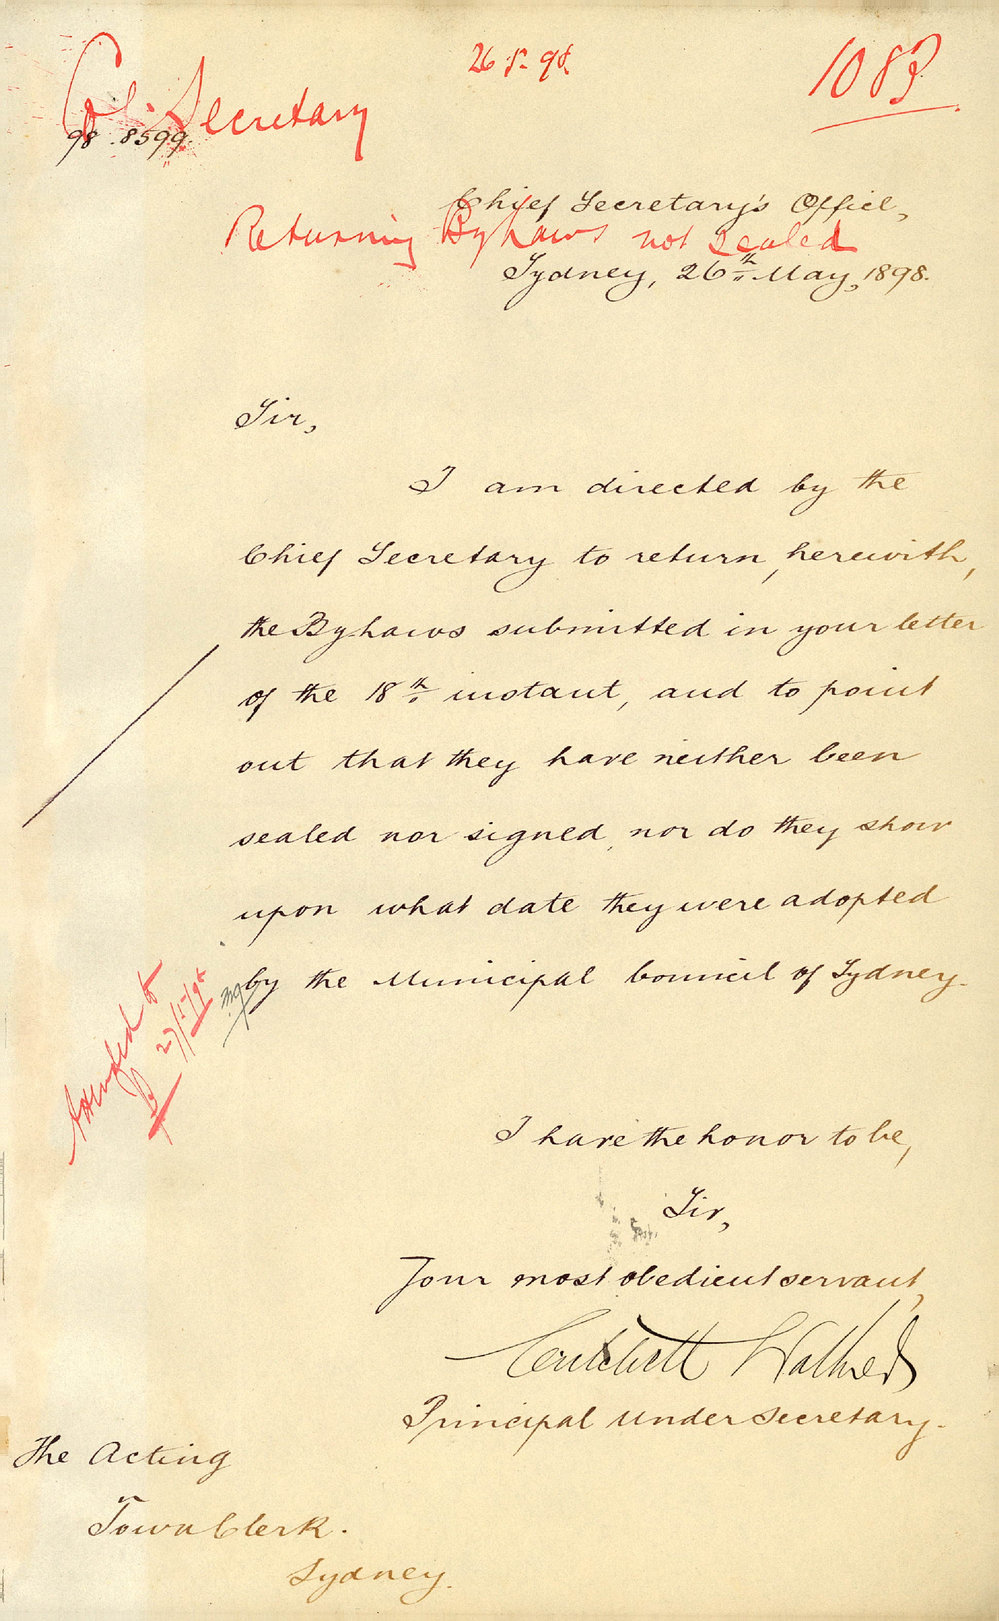 26.5.98.
1083
Col. Secretary
98.8599.
Chief Secretary's Office,
Returning By Laws not sealed
Sydney, 26th May, 1898.
Sir,
I am directed by the
Chief Secretary to return, herewith,
the By-Laws submitted in your letter
of the 18th instant, and to point
out that they have neither been
sealed nor signed, nor do they show
upon what date they were adopted
by the Municipal Council of Sydney.
Attended to
27/5/98
I have the honor to be,
Sir,
Your most obedient servant,
Critchett Walker
Principal Under Secretary.
The Acting
Town Clerk.
Sydney.